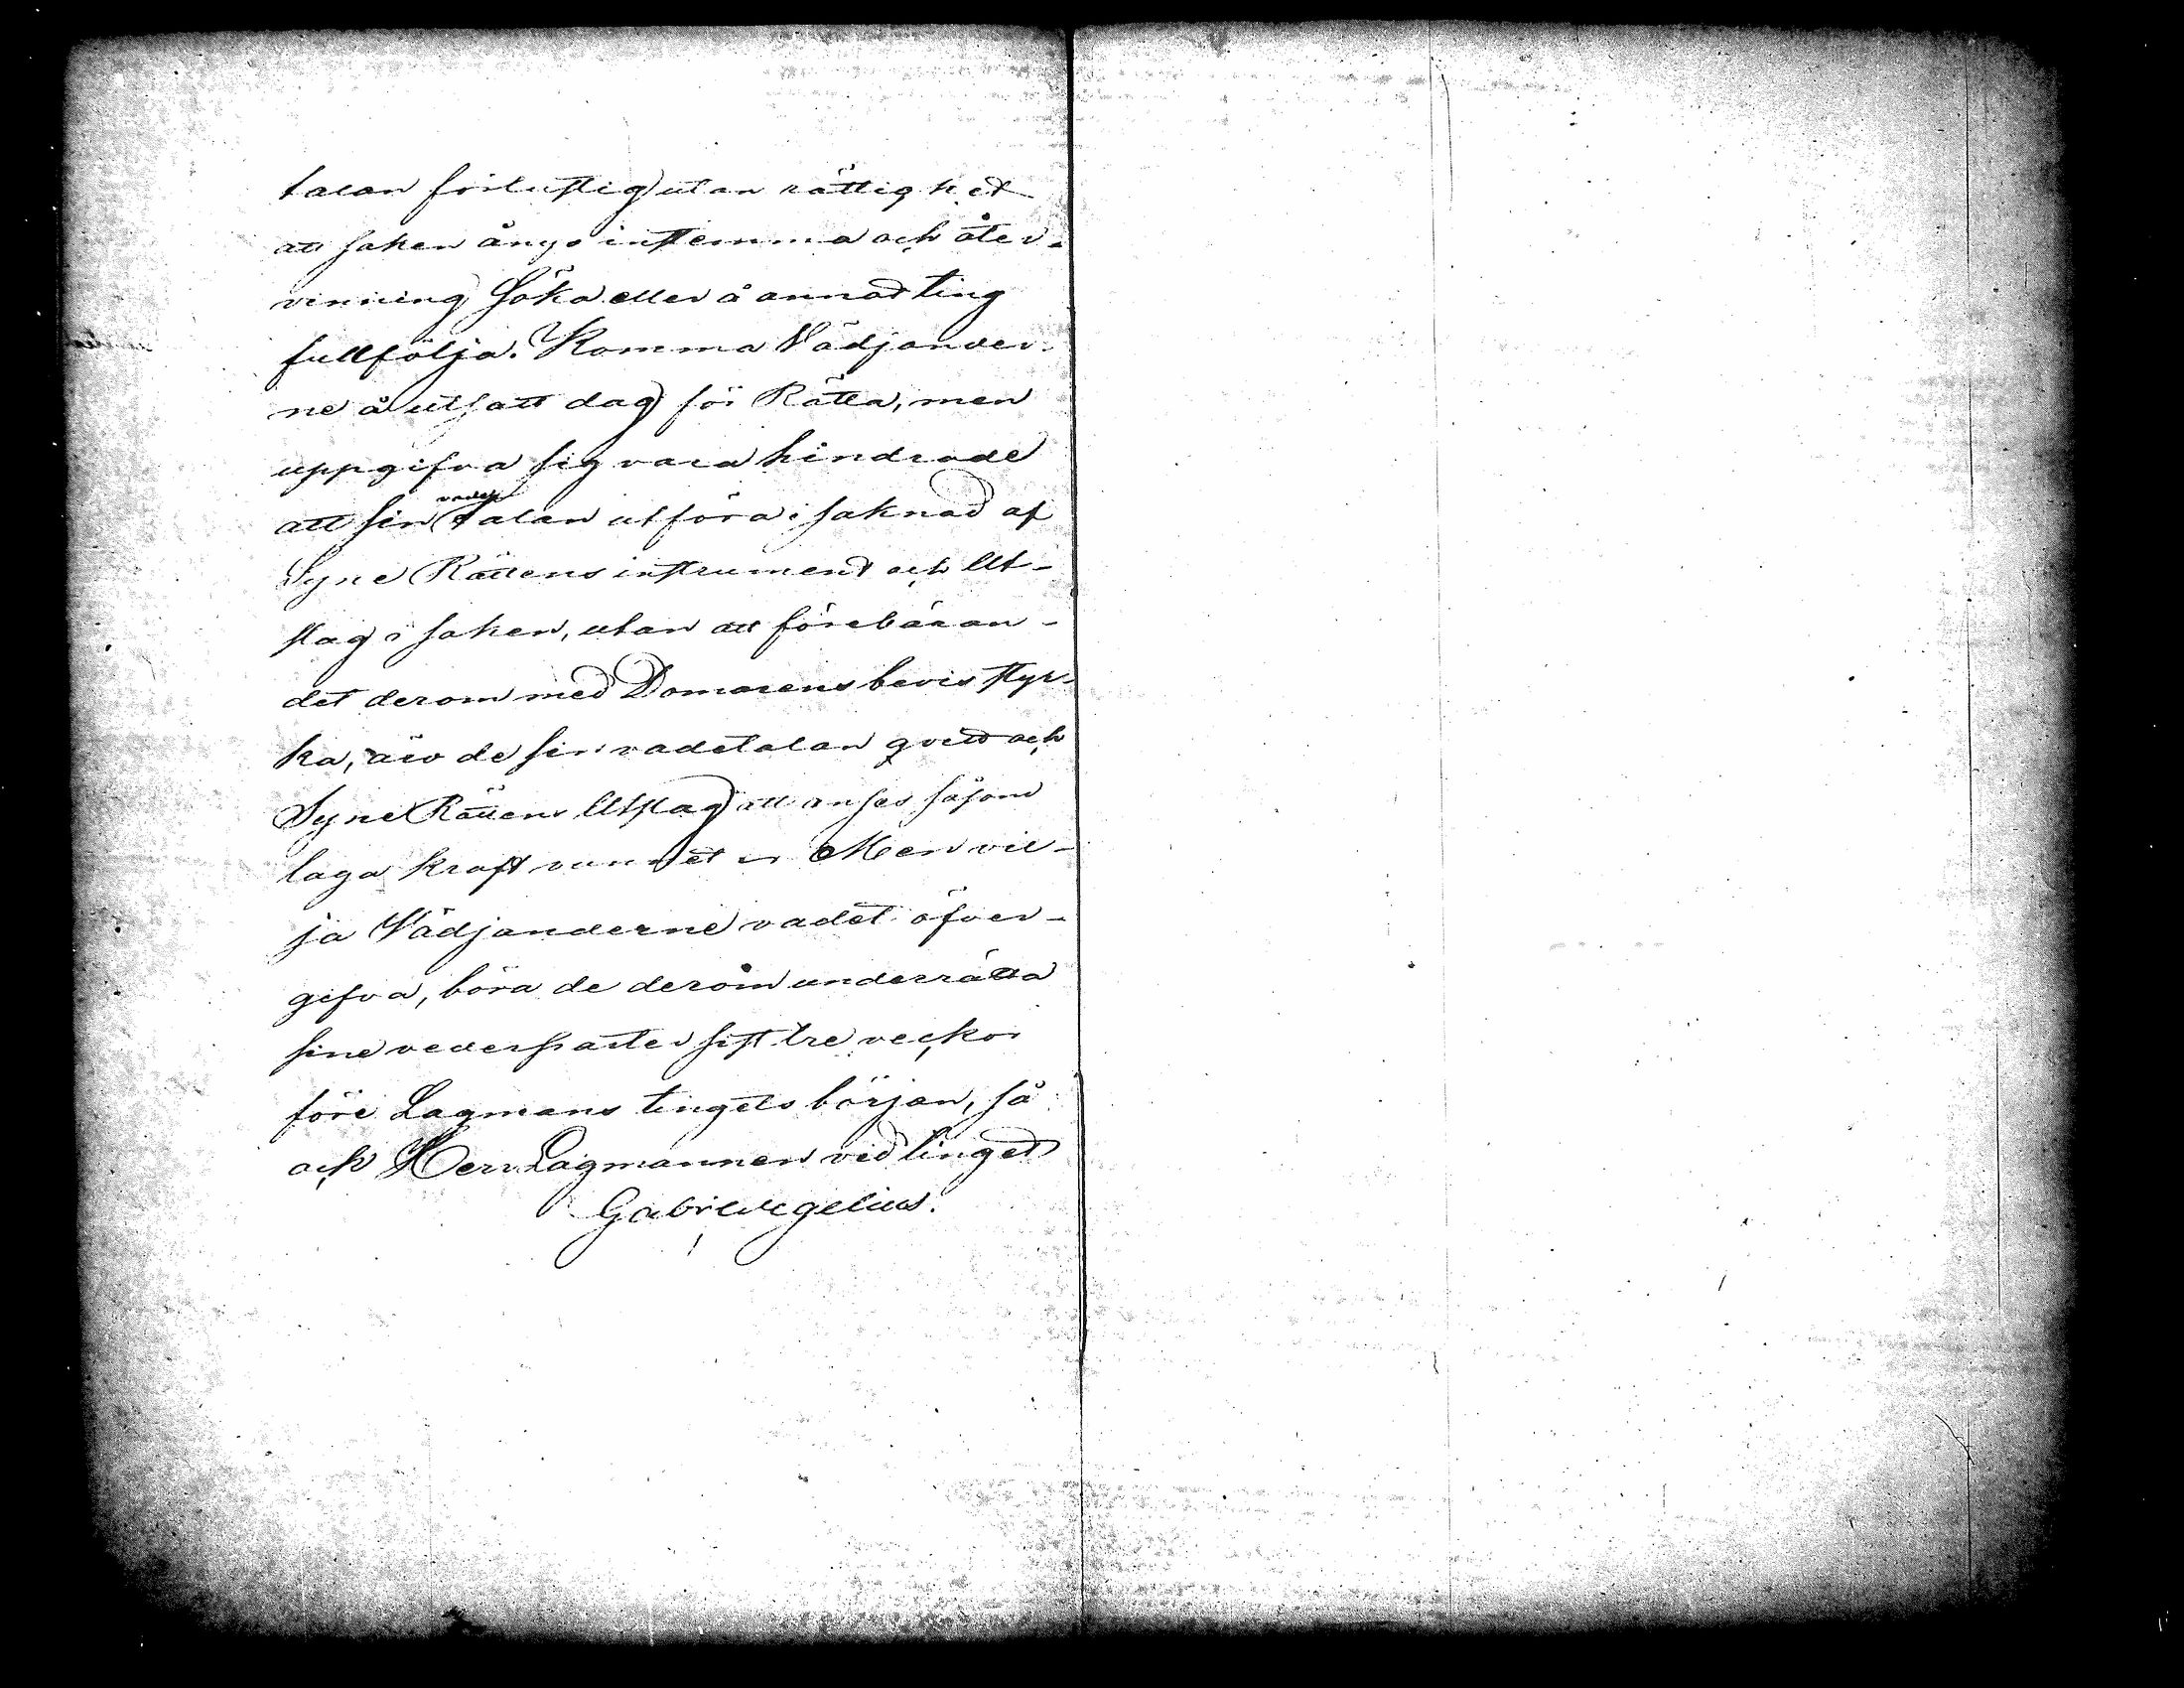 talan förlustig utan rättighet
att saken ånyo instemma och åter-
vinning söka eller å annat ting
fullfölja. Komma Vädjander-
ne å utsatt dag för Rätta, men
uppgifva sig vara hindrade
att sin vade talan utföra i saknad af
Syne Rättens instrument och Ut-
slag i saken, utan att föreböran-
det derom med Domarens bevis styr-
ka, äro de sin vadetalan qvitt och
Syne Rättens Utslag att anses såsom
laga kraft vunnet Men vil-
ja Vädjanderne vadet öfver-
gifva, böra de derom underrätta
sine vederparter sist tre veckor
före Lagmans tingets början, så
och Herr Lagmannen vid tinget